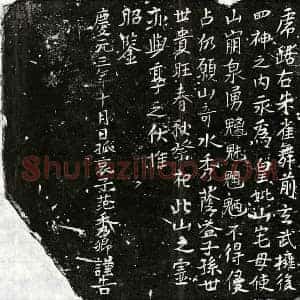 虎踞右朱雀舞前玄武擁後
四神之内永為皇妣山宅毋使
山崩泉湧魑魅魍魎不得侵
占仍願山奇水秀蔭益子孫世
世貴旺春秋祭祀此山之靈
亦與享之伏惟
昭鑒
慶元三年十月日孤哀子范秀卿謹告
ShufaZiliao.COM